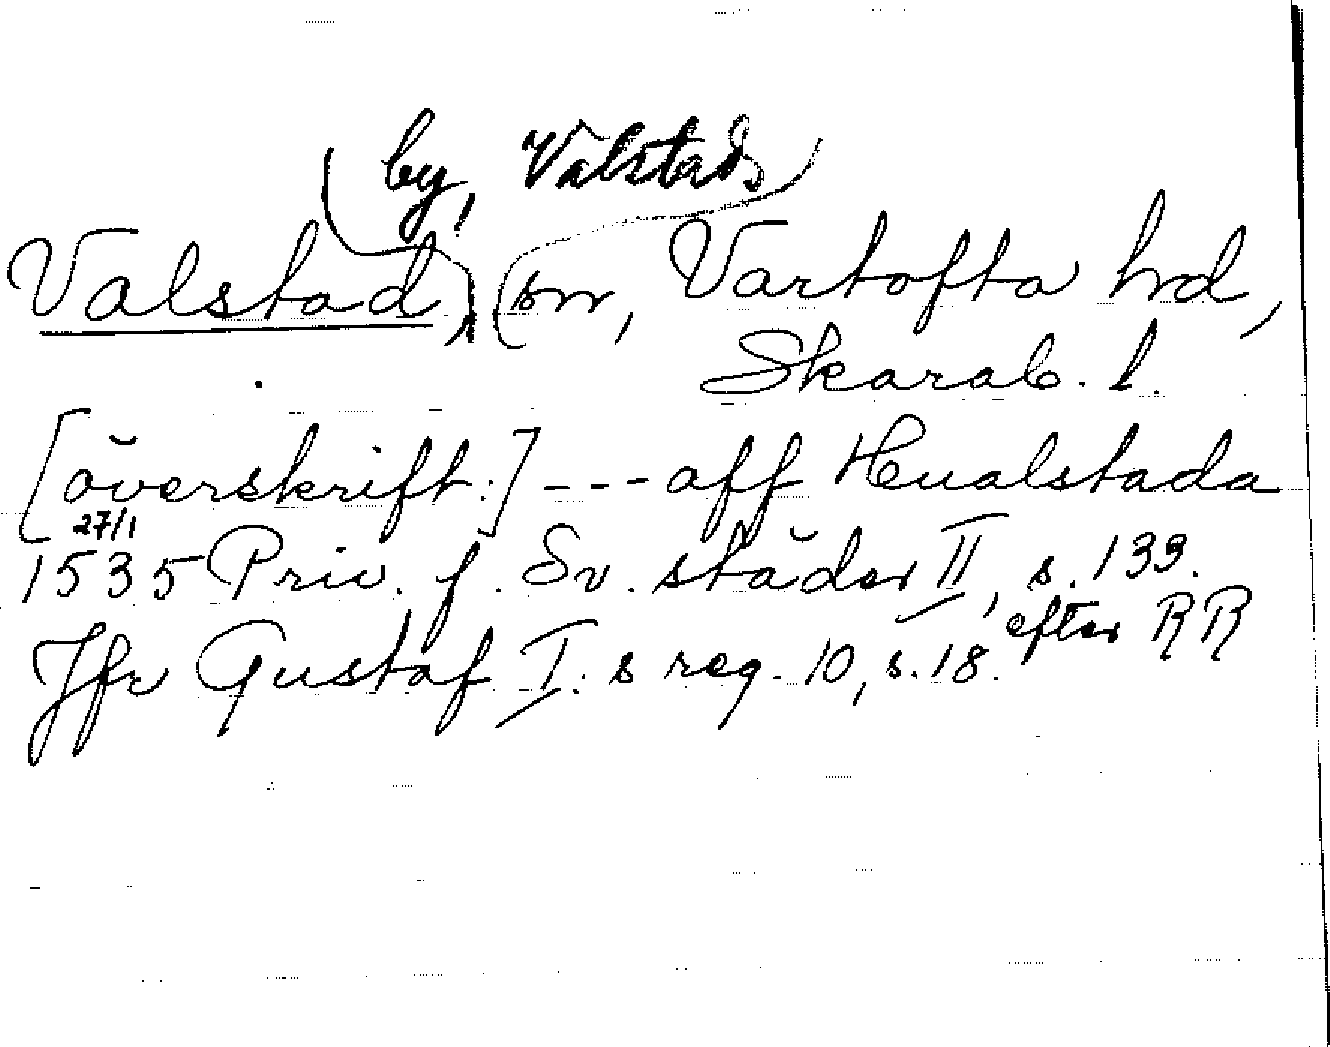 by, Valstads
Valstad, sn, Vartofta hd,
Skarab. l.
[överskrift:] --- aff Hualstada
27/1
1535 Priv. f. Sv. städer II, s. 139.
efter RR
Jfr Gustaf I:s reg. 10, s. 18.